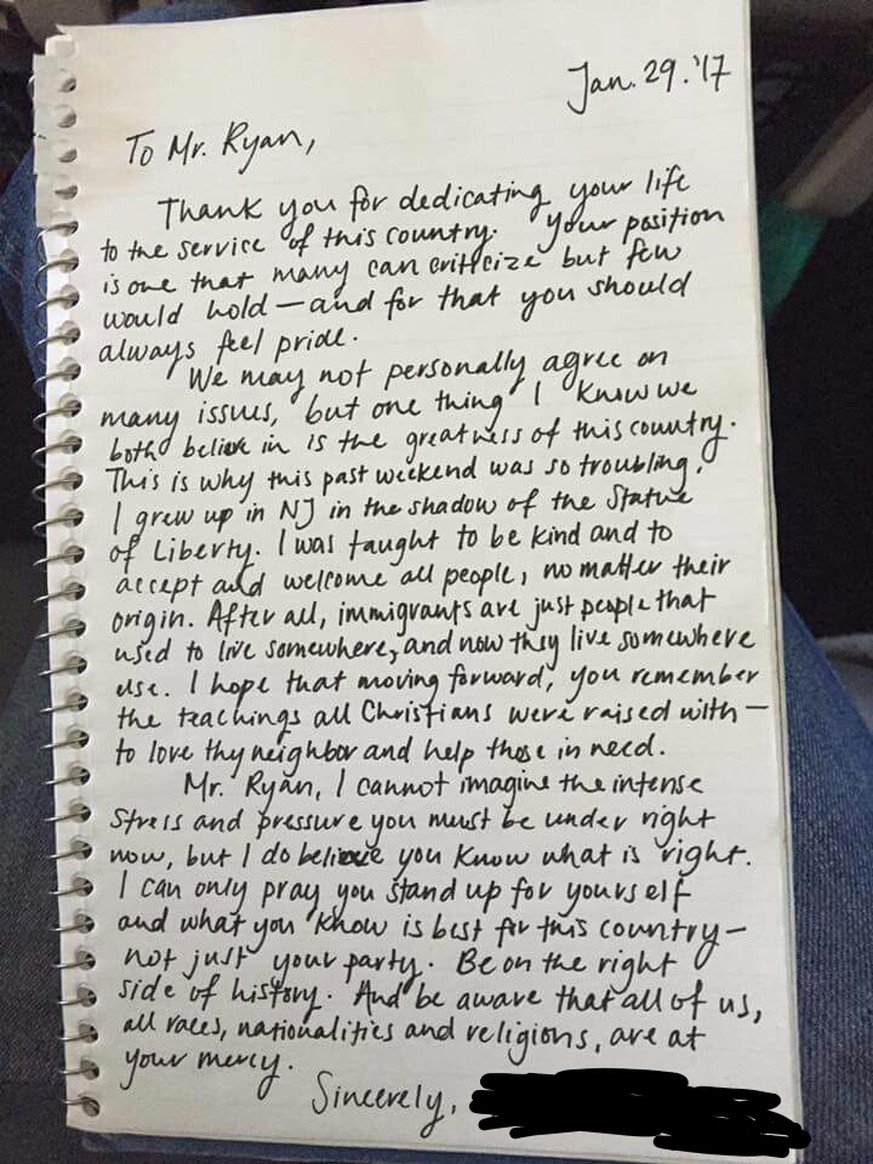 Jan. 29. '17
To Mr. Ryan,
Thank you for dedicating your life
to the service of this country. Your position
is one that many can criticize but few
would hold — and for that you should
always feel pride.
We may not personally agree on
many issues, but one thing I know we
both believe in is the greatness of this country.
This is why this past weekend was so troubling.
I grew up in NJ in the shadow of the Statue
of Liberty. I was taught to be kind and to
accept and welcome all people, no matter their
origin. After all, immigrants are just people that
used to live somewhere, and now they live somewhere
else. I hope that moving forward, you remember
the teachings all Christians were raised with —
to love thy neighbor and help those in need.
Mr. Ryan, I cannot imagine the intense
stress and pressure you must be under right
now, but I do believe you know what is right.
I can only pray you stand up for yourself
and what you know is best for this country —
not just your party. Be on the right
side of history. And be aware that all of us,
all races, nationalities and religions, are at
your mercy.
Sincerely,